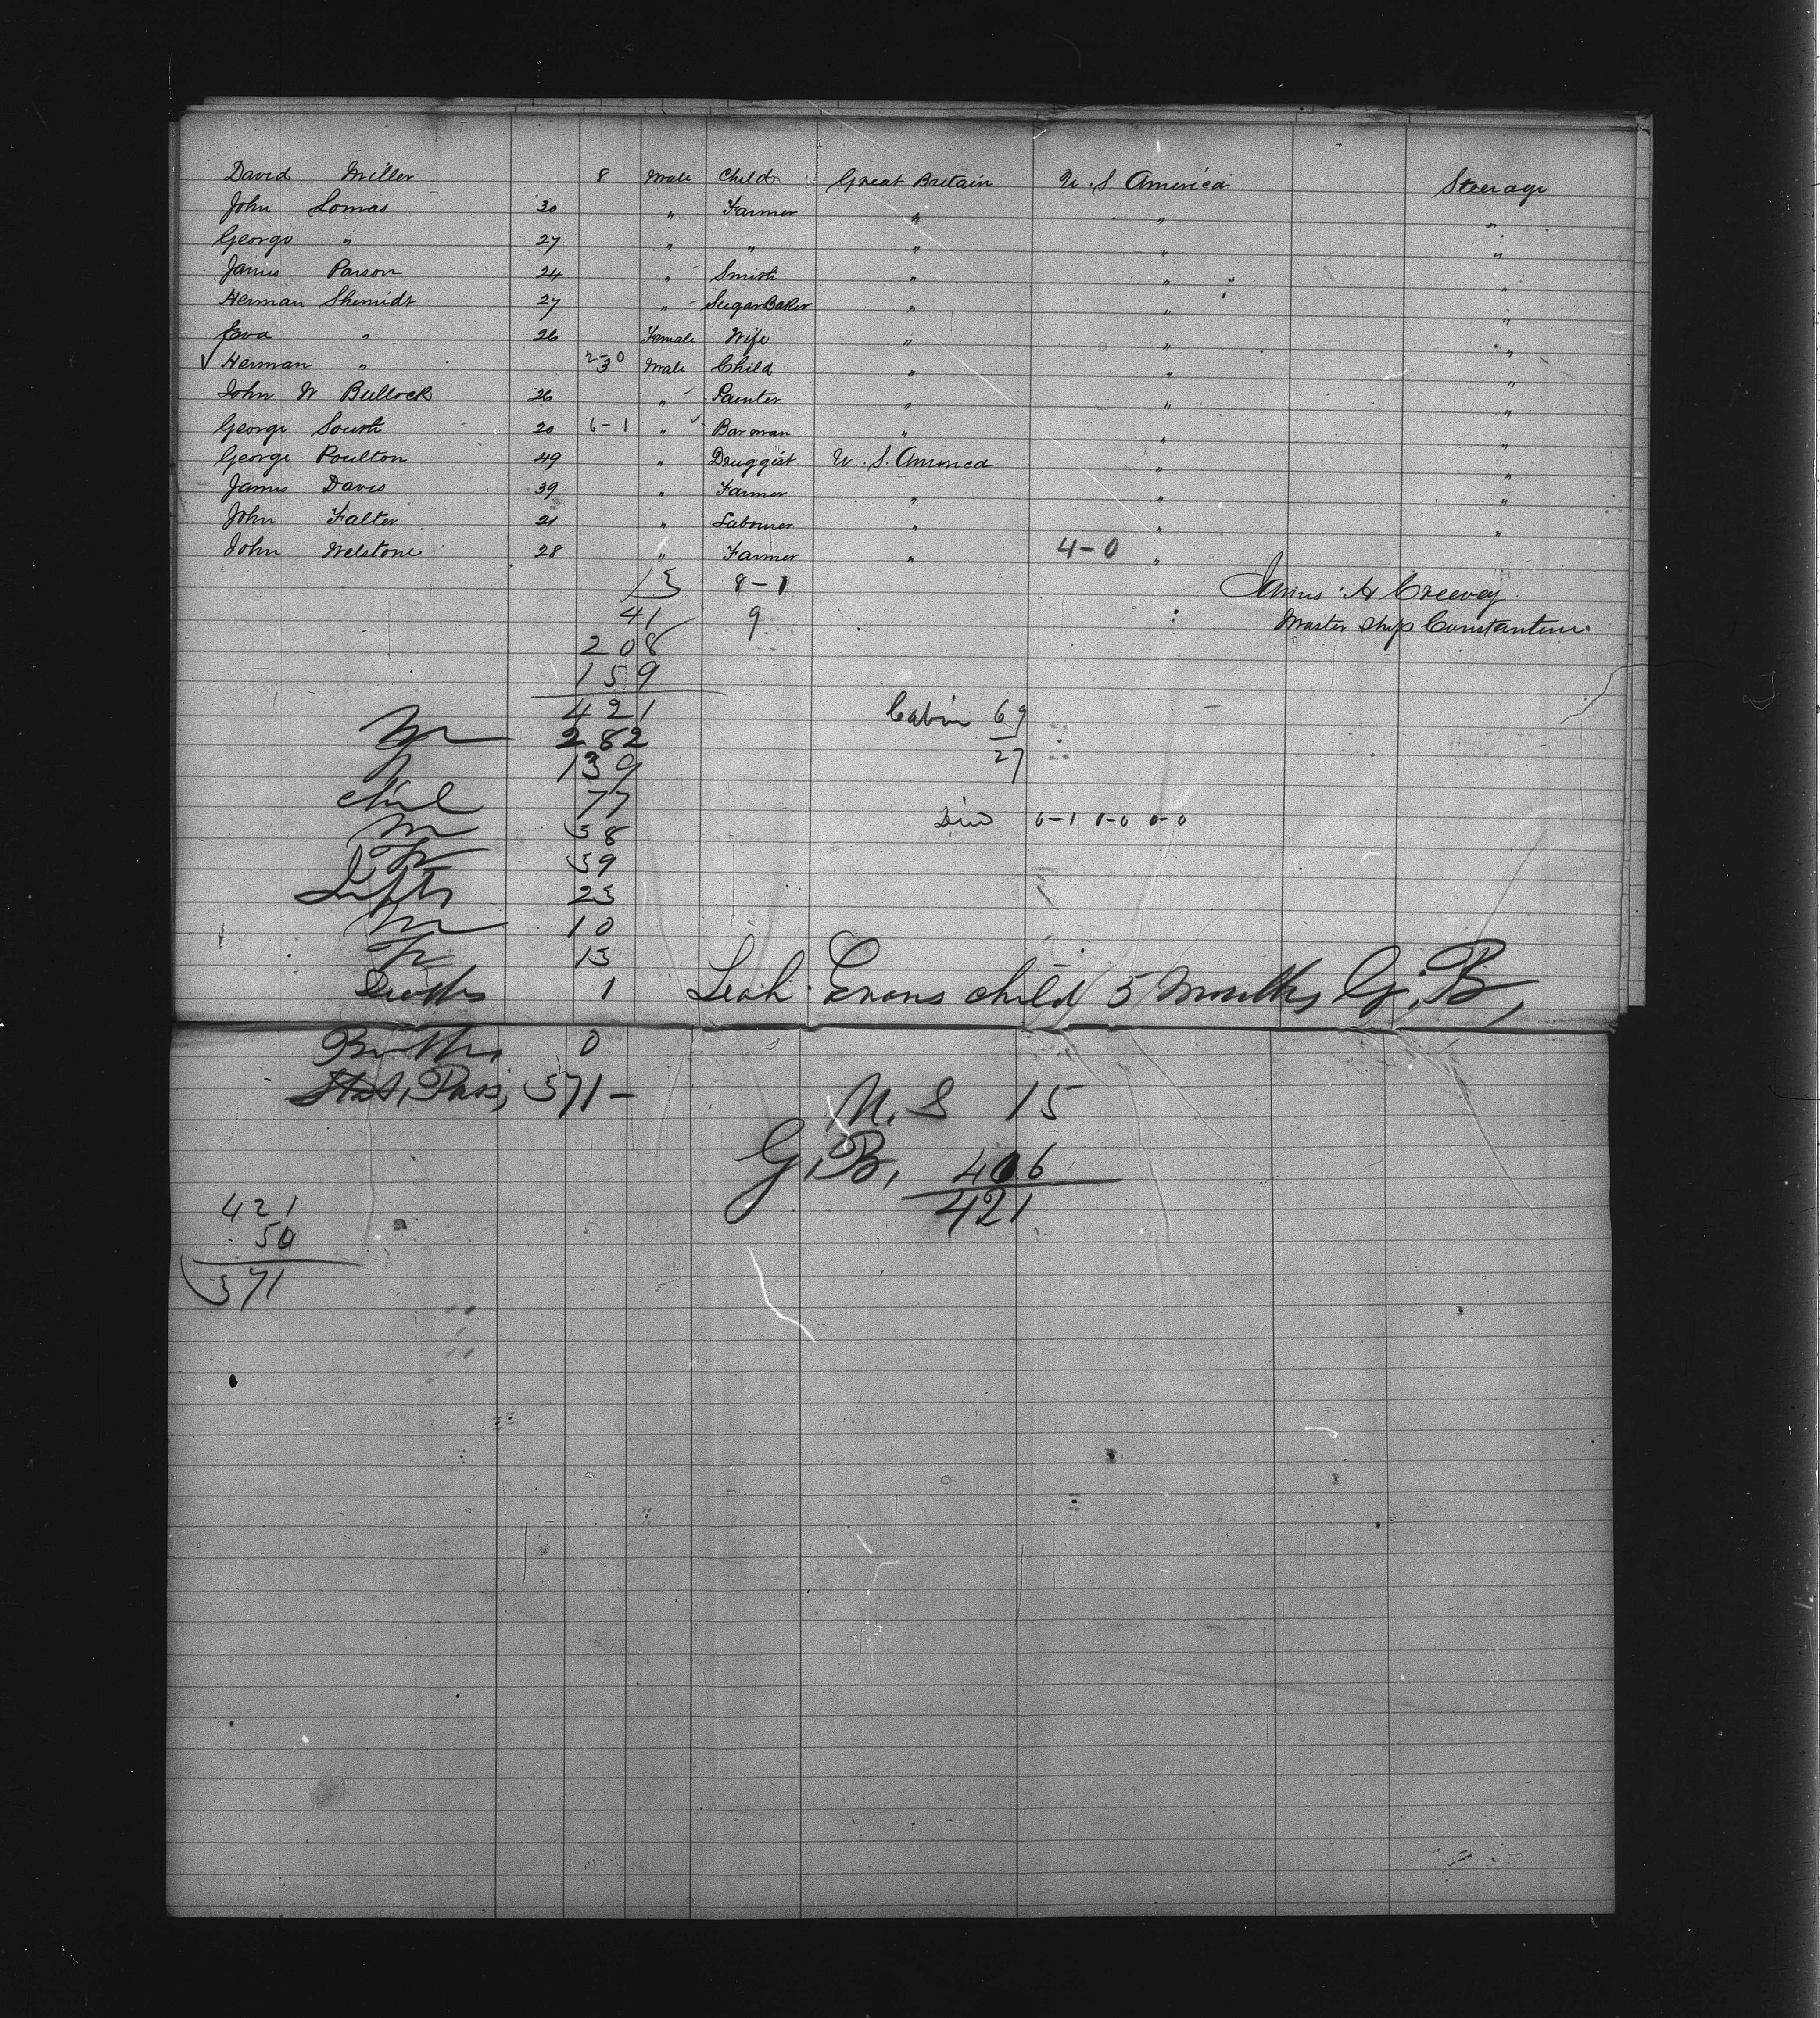 David Miller 8 Male Child Great Britain U. S America Steerage
John Lomas 30 " Farmer " " "
George " 27 " " " " "
James Parson 24 " Smith " " "
Herman Shemidt 27 " Sugar Baker " " "
Eva " 26 Female Wife " " "
✓ Herman " 2-0 3 Male Child " " "
John W Bullock 26 " Painter " " "
George South 20 6-1 " Barman " " "
George Poulton 49 " Druggist U. S. America " "
James Davis 39 " Farmer " " "
John Falter 21 " Labourer " " "
John Welstone 28 " Farmer " 4-0 "
13 8-1 James A Creevey
41 9 Master Ship Constantine
208
159
421 Cabin 69
M 282 27
139
Chil 77
M 38 0-1 0-0 0-0
F 39
Infts 23
M 10
F 13
Deaths 1 Leah Evans child 5 Months G. B,
Births 0
Pass, 371 -
U. S 15
G. B, 406
421
421
50
371